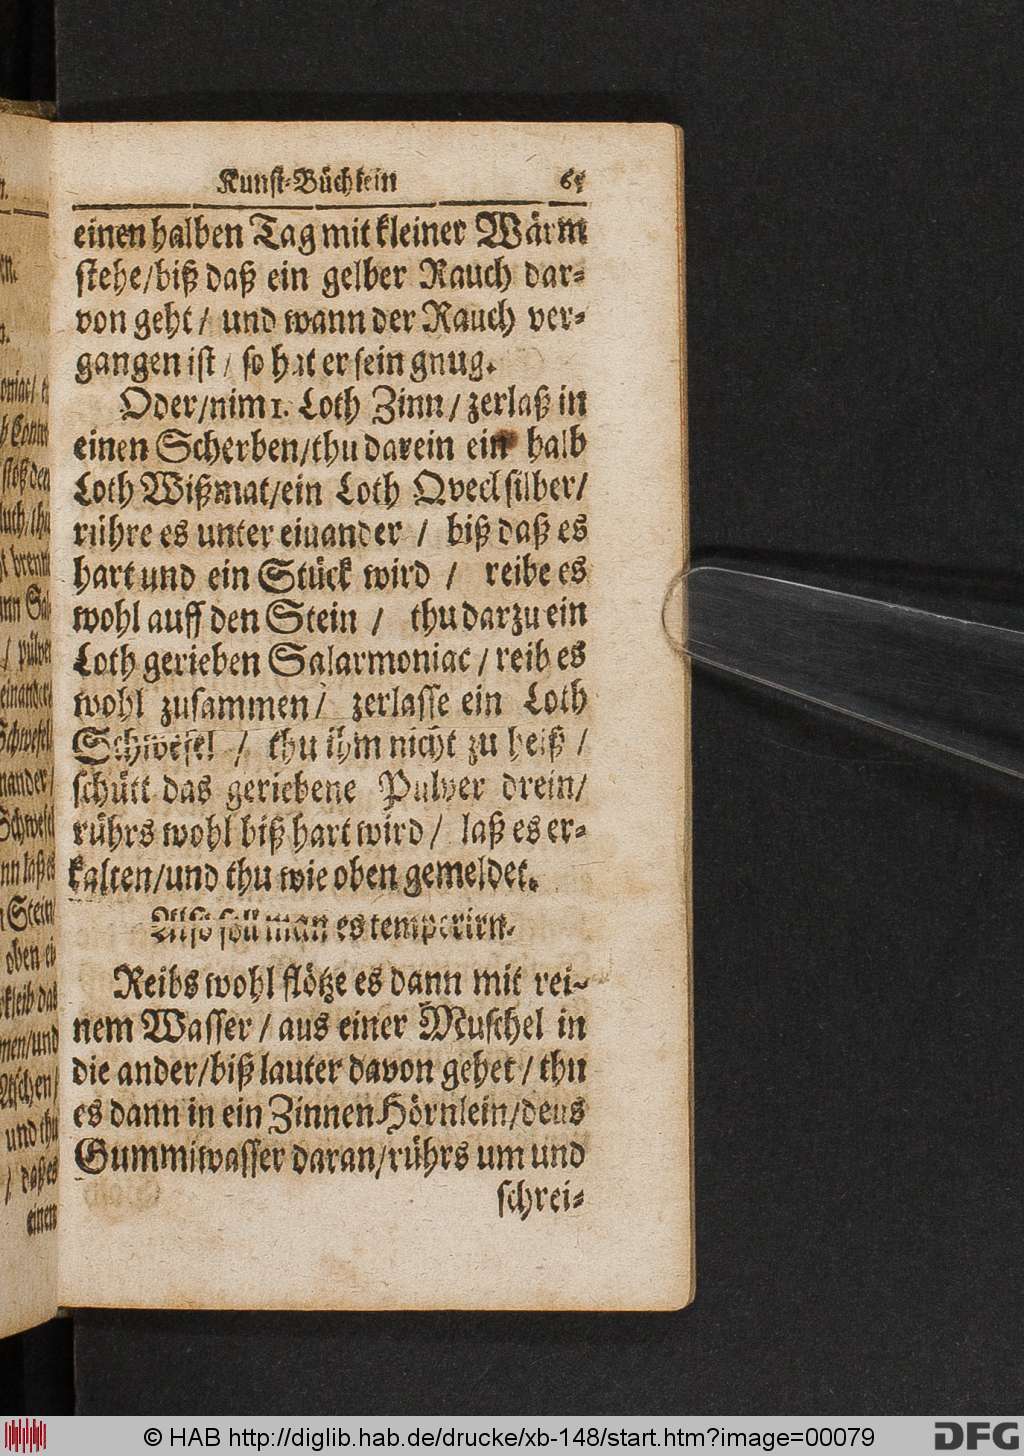 Kunst-Büchlein 65
einen halben Tag mit kleiner Wärm
stehe/biß daß ein gelber Rauch dar-
von geht / und wann der Rauch ver-
gangen ist / so hat er sein gnug.
Oder/nim 1. Loth Zinn / zerlaß in
einen Scherben/thu darein ein halb
Loth Wißmat/ein Loth Qvecksilber/
rühre es unter einander / biß daß es
hart und ein Stück wird / reibe es
wohl auff den Stein / thu darzu ein
Loth gerieben Salarmoniac / reib es
wohl zusammen / zerlasse ein Loth
Schwefel / thu ihm nicht zu heiß /
schütt das geriebene Pulver drein/
rührs wohl biß hart wird / laß es er-
kalten/und thu wie oben gemeldet.
Also soll man es temperirn.
Reibs wohl flötze es dann mit rei-
nem Wasser / aus einer Muschel in
die ander/biß lauter davon gehet / thu
es dann in ein Zinnen Hörnlein/deus
Gummiwasser daran/rührs um und
schrei-
© HAB http://diglib.hab.de/drucke/xb-148/start.htm?image=00079
DFG